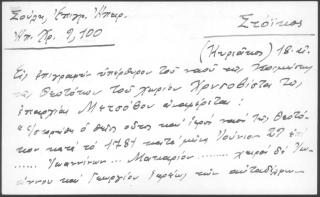 Σούλη, Ἐπιγρ. Ἠπειρ.
Στόϊκος
Ἠπ. Χρ. 9, 100
(Κυριᾶκος) 18. αἰ.
Εἰς ἐπιγραφὴν ὑπέρθυρον τοῦ ναοῦ τῆς Κοιμήσεως
τῆς Θεοτόκου τοῦ χωρίου Χρυσοβίστα τῆς
ἐπαρχίας Μετσόβου ἀναφέρεται:
"Ἱστορήθη ὁ θεῖος οὗτος καὶ ἱερὸς ναὸς τῆς Θεοτό-
κου κατὰ τὸ 1781 κατὰ μῆνα Ἰούνιον 27 ἐπὶ
....... Ἰωαννίνων ... Μακαρίου ........ χειρὶ δὲ Ἰω-
άννου καὶ Γεωργίου ἱερέως τῶν αὐταδέλφων